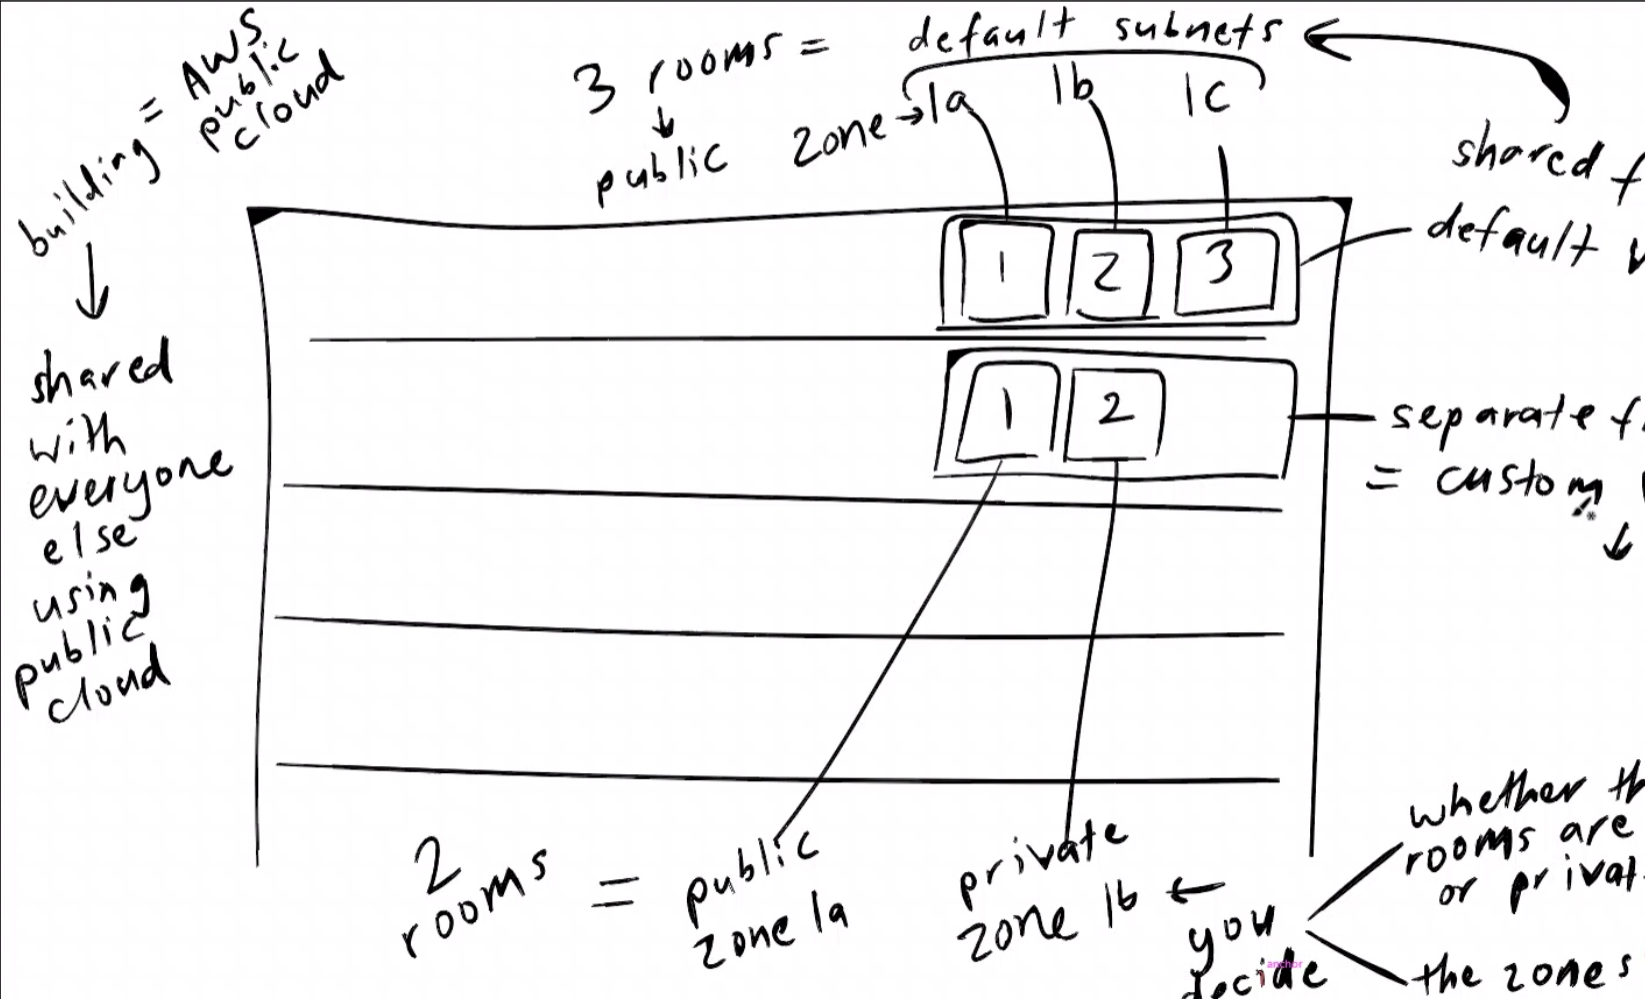 building = AWS
public
cloud
shared
with
everyone
else
using
public
cloud
3 rooms =
public
default subnets
zone → 1a 1b 1c
1 2 3
shared f
default v
1 2
separate f
= custom
2
rooms =
public
zone 1a
private
zone 1b
you
decide
anchor
whether th
rooms are
or privat
the zones